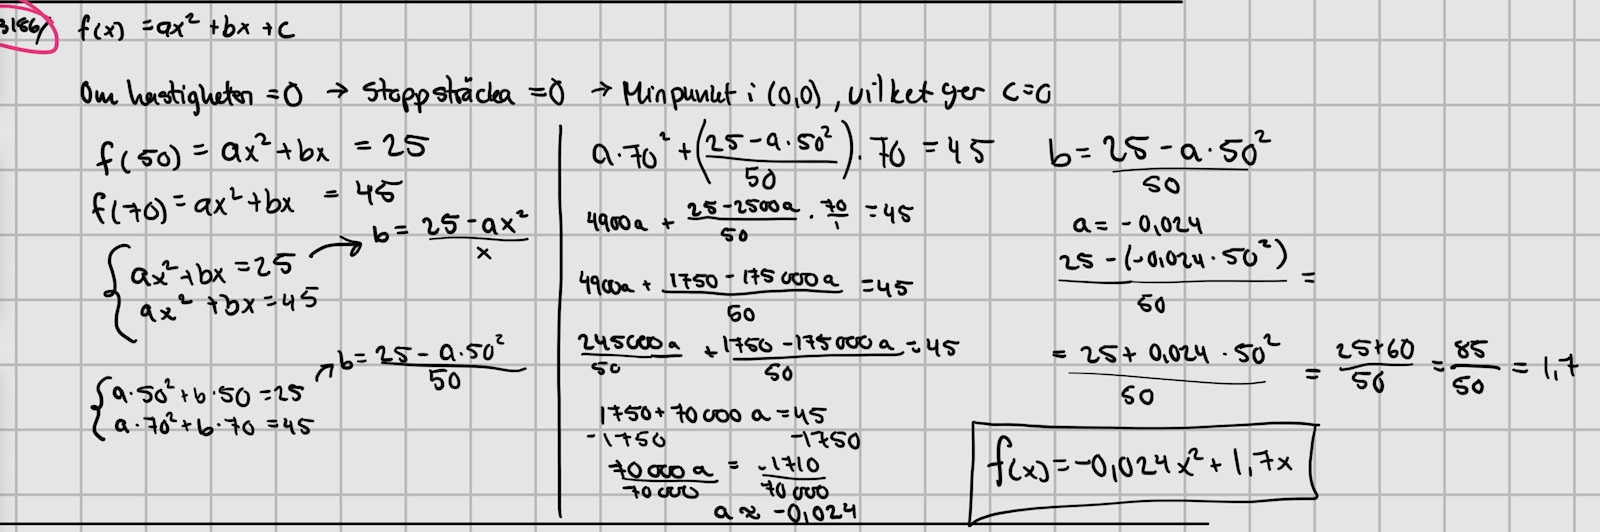 3186/ f(x) = ax² + bx + c
Om hastigheten = 0 → stoppsträcka = 0 → Minpunkt i (0,0), vilket ger c = 0
f(50) = ax² + bx = 25
f(70) = ax² + bx = 45
{ ax² + bx = 25 → b = (25 - ax²)/x
{ ax² + bx = 45
{ a·50² + b·50 = 25 → b = (25 - a·50²)/50
{ a·70² + b·70 = 45
a·70² + ((25 - a·50²)/50)·70 = 45
4900a + (25 - 2500a)/50 · 70/1 = 45
4900a + (1750 - 175 000a)/50 = 45
245000a/50 + (1750 - 175 000a)/50 = 45
1750 + 70 000 a = 45
-1750 -1750
70 000 a/70 000 = -1710/70 000
a ≈ -0,024
b = (25 - a·50²)/50
a = -0,024
(25 - (-0,024·50²))/50 =
= (25 + 0,024·50²)/50 = (25+60)/50 = 85/50 = 1,7
f(x) = -0,024x² + 1,7x